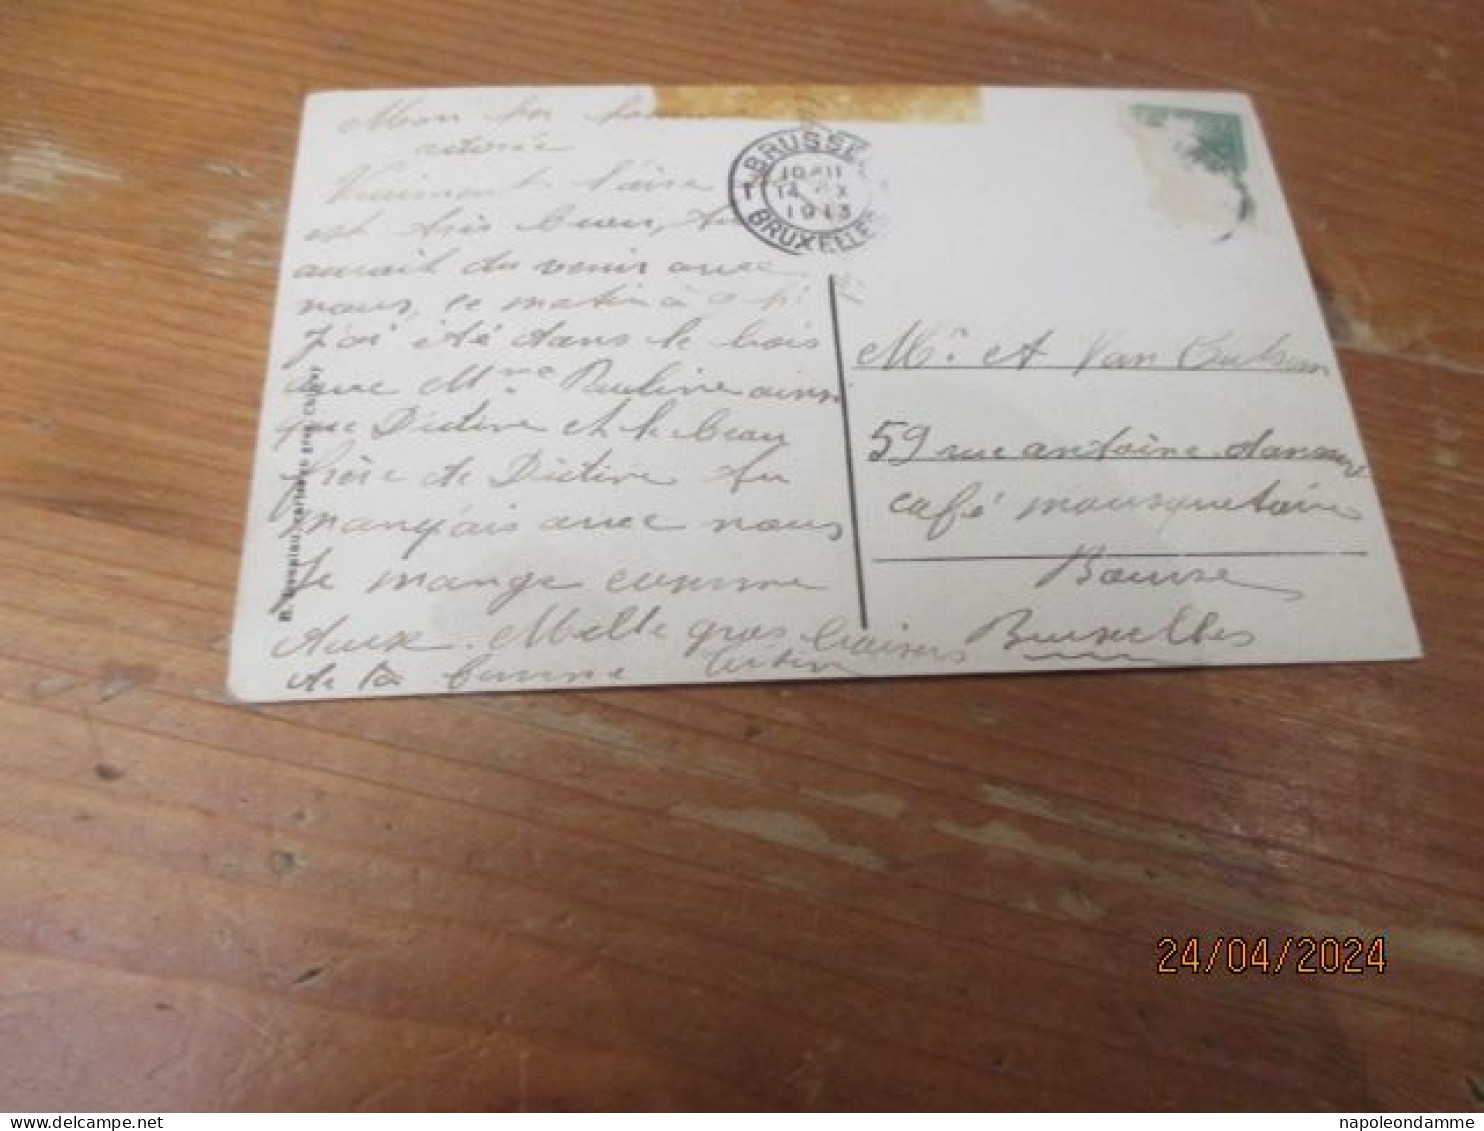 Mon
adorée
Vraiment l'aire
est très beau, tu
aurait du venir avec
nous, ce matin à 9 h
j'ai été dans le bois
avec Mme Pauline ainsi
que Dictine et le beau
frère de Dictine tu
mangais avec nous
Je mange comme
deux. Mille gros baisers
de ta
BRUSSEL
1 10-11
14 X
1913
BRUXELLES
Mr A Van
59 rue antoine dansaert
café mousquetaire
Bourse
Bruxelles
24/04/2024
napoleondamme